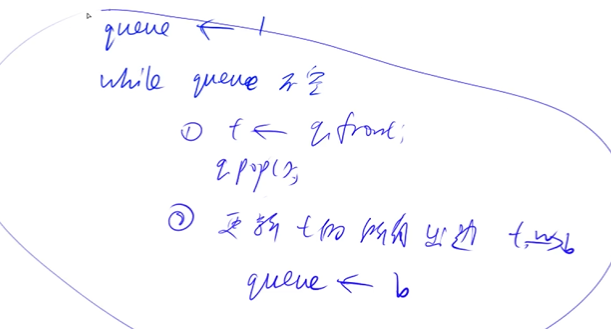 queue ← 1
while queue 不空
① t ← q.front;
q.pop();
② 更新t的所有出边 t —w→ b
queue ← b